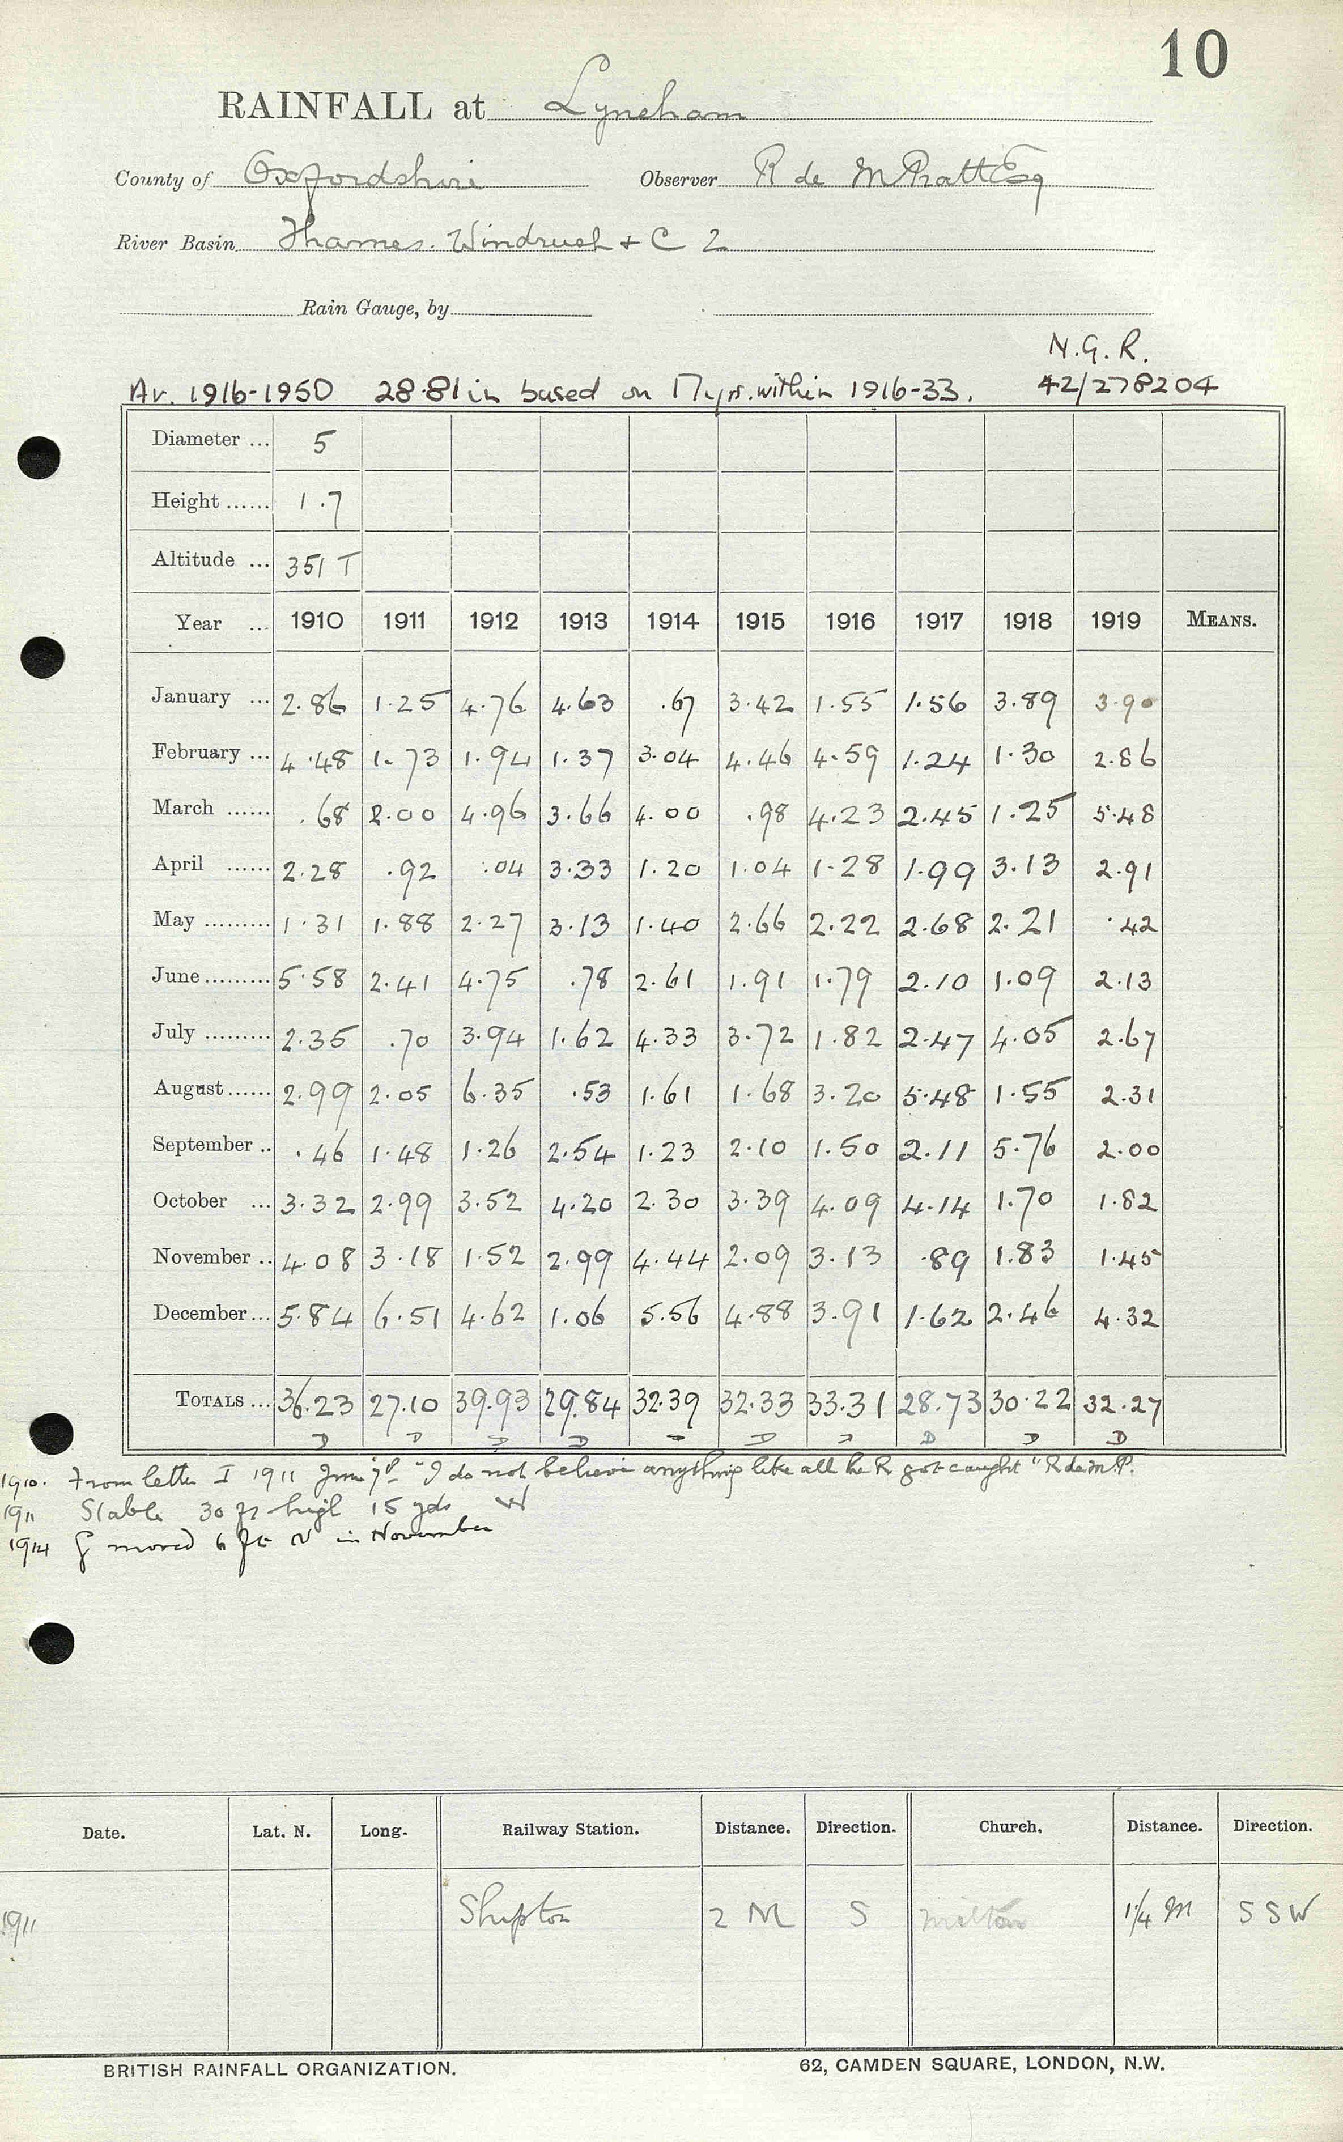 10
RAINFALL at Lyneham
County of Oxfordshire Observer R de M Pratt Esq
River Basin Thames. Windrush + C 2
Rain Gauge, by
N.G.R.
Av. 1916-1950 28.81 in based on 17 yrs. within 1916-33. 42/278204
Diameter ... 5
Height ...... 1.7
Altitude ... 351 T
Year ... 1910 1911 1912 1913 1914 1915 1916 1917 1918 1919 MEANS.
January ... 2.86 1.25 4.76 4.63 .67 3.42 1.55 1.56 3.89 3.90
February ... 4.48 1.73 1.94 1.37 3.04 4.46 4.59 1.24 1.30 2.86
March ...... .68 2.00 4.96 3.66 4.00 .98 4.23 2.45 1.25 5.48
April ...... 2.28 .92 .04 3.33 1.20 1.04 1.28 1.99 3.13 2.91
May ......... 1.31 1.88 2.27 3.13 1.40 2.66 2.22 2.68 2.21 .42
June ......... 5.58 2.41 4.75 .78 2.61 1.91 1.79 2.10 1.09 2.13
July ......... 2.35 .70 3.94 1.62 4.33 3.72 1.82 2.47 4.05 2.67
August ...... 2.99 2.05 6.35 .53 1.61 1.68 3.20 5.48 1.55 2.31
September .. .46 1.48 1.26 2.54 1.23 2.10 1.50 2.11 5.76 2.00
October ... 3.32 2.99 3.52 4.20 2.30 3.39 4.09 4.14 1.70 1.82
November .. 4.08 3.18 1.52 2.99 4.44 2.09 3.13 .89 1.83 1.45
December ... 5.84 6.51 4.62 1.06 5.56 4.88 3.91 1.62 2.46 4.32
TOTALS ... 36.23 27.10 39.93 29.84 32.39 32.33 33.31 28.73 30.22 32.27
D D D D D D D D D
1910. From letter I 1911 "I do not believe anything like all the R got caught" R de M P.
1911 Stable 30 ft high 15 yds W
1914 G moved 6 ft N in November
Date. Lat. N. Long. Railway Station. Distance. Direction. Church. Distance. Direction.
1911 Shipton 2 M S Milton 1/4 M SSW
BRITISH RAINFALL ORGANIZATION. 62, CAMDEN SQUARE, LONDON, N.W.